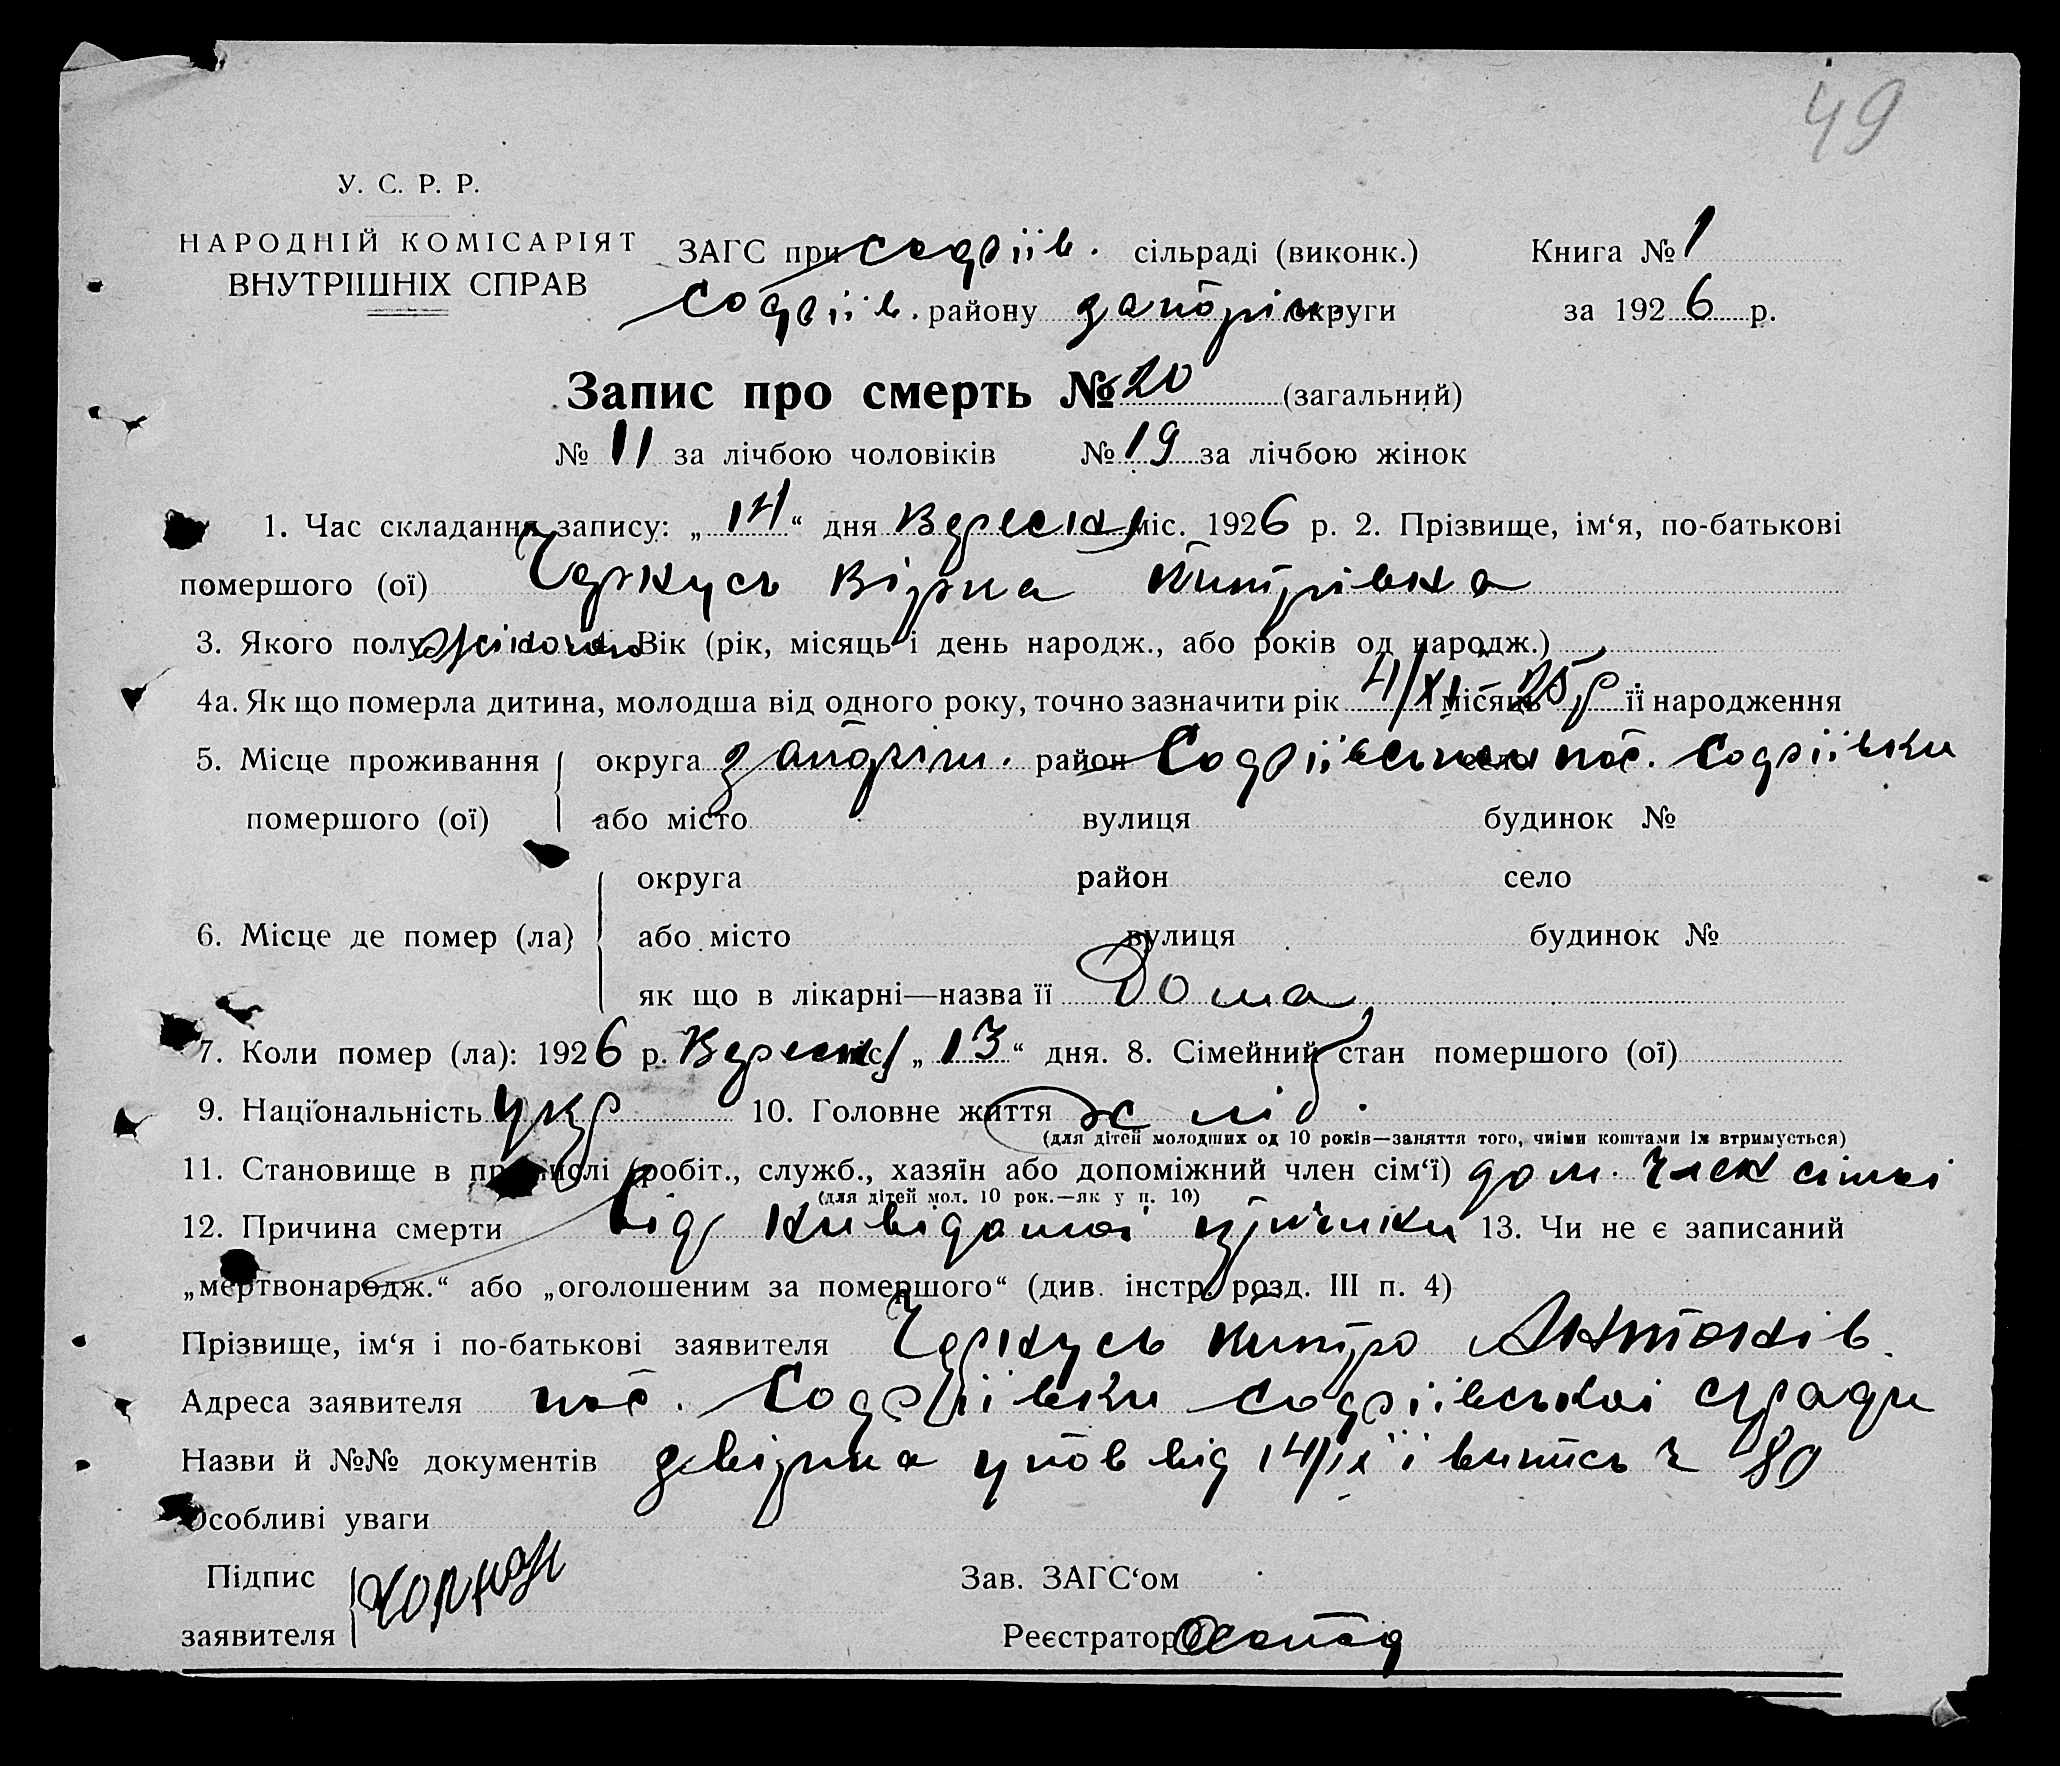 49
У. С. Р. Р.
НАРОДНІЙ КОМІСАРІЯТ
ВНУТРІШНІХ СПРАВ
ЗАГС при Софіїв. сільраді (виконк.) Книга № 1
Софіїв. району Запоріж. округи за 1926 р.
Запис про смерть № 20 (загальний)
№ 11 за лічбою чоловіків № 19 за лічбою жінок
1. Час складання запису: „14“ дня Вересня міс. 1926 р. 2. Прізвище, ім‘я, по-батькові
помершого (ої) Черкусь Вірна
3. Якого полу жіночого Вік (рік, місяць і день народж., або років од народж.)
4а. Як що померла дитина, молодша від одного року, точно зазначити рік 4/XI місяць 25 р її народження
5. Місце проживання округа Запоріж. район Софіївський село пос. Софіївки
помершого (ої) або місто вулиця будинок №
округа район село
6. Місце де помер (ла) або місто вулиця будинок №
як що в лікарні—назва її Дома
7. Коли помер (ла): 1926 р. Вересня міс. „13“ дня. 8. Сімейний стан помершого (ої)
9. Національність укр 10. Головне життя хліб.
(для дітей молодших од 10 років—заняття того, чиїми коштами їх втримується)
11. Становище в промислі (робіт., служб., хазяїн або допоміжний член сім‘ї) дом. член сімї
(для дітей мол. 10 рок.—як у п. 10)
12. Причина смерти від невідомої причини 13. Чи не є записаний
„мертвонародж.“ або „оголошеним за помершого“ (див. інстр. розд. III п. 4)
Прізвище, ім‘я і по-батькові заявителя Черкусь Антонів.
Адреса заявителя пос. Софіївки Софіївської с/ради
Назви й №№ документів довірна упов від 14/IX і випись ч 80
Особливі уваги
Підпис
Зав. ЗАГС‘ом
заявителя
Реєстратор